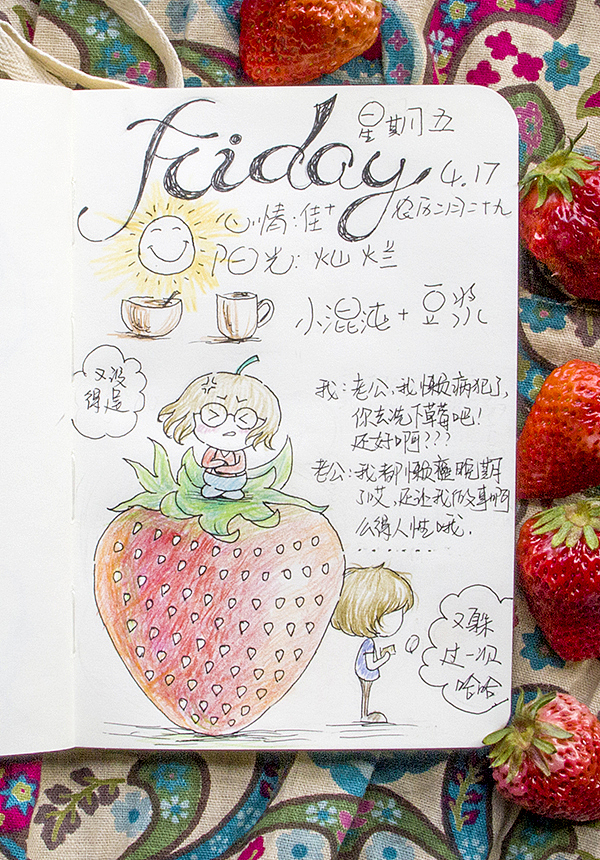 Friday
星期五
4.17
农历二月二十九
心情:佳+
阳光:灿烂
小混沌+豆浆
又没
得逞
我:老公,我懒病犯了,
你去洗下草莓吧!
还好啊???
老公:我都懒癌晚期
了哎,还让我做事啊
么得人性哦.
......
又躲
过一次
哈哈